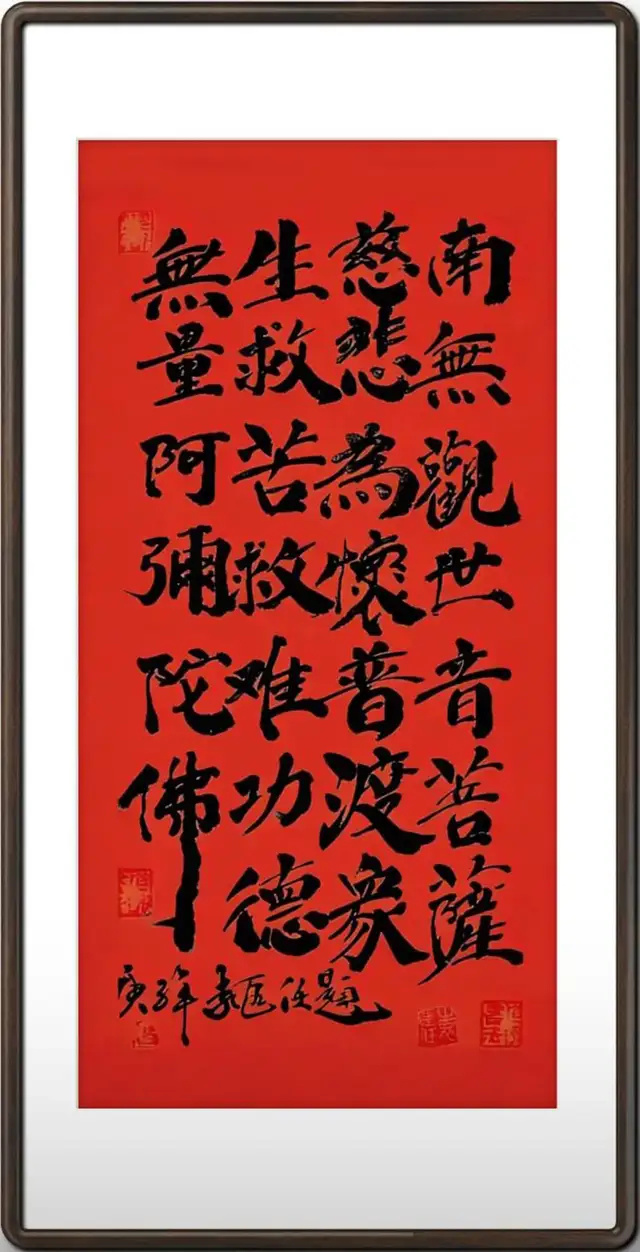 南無觀世音菩薩
慈悲為懷普渡衆
生救苦救难功德
無量阿彌陀佛
題